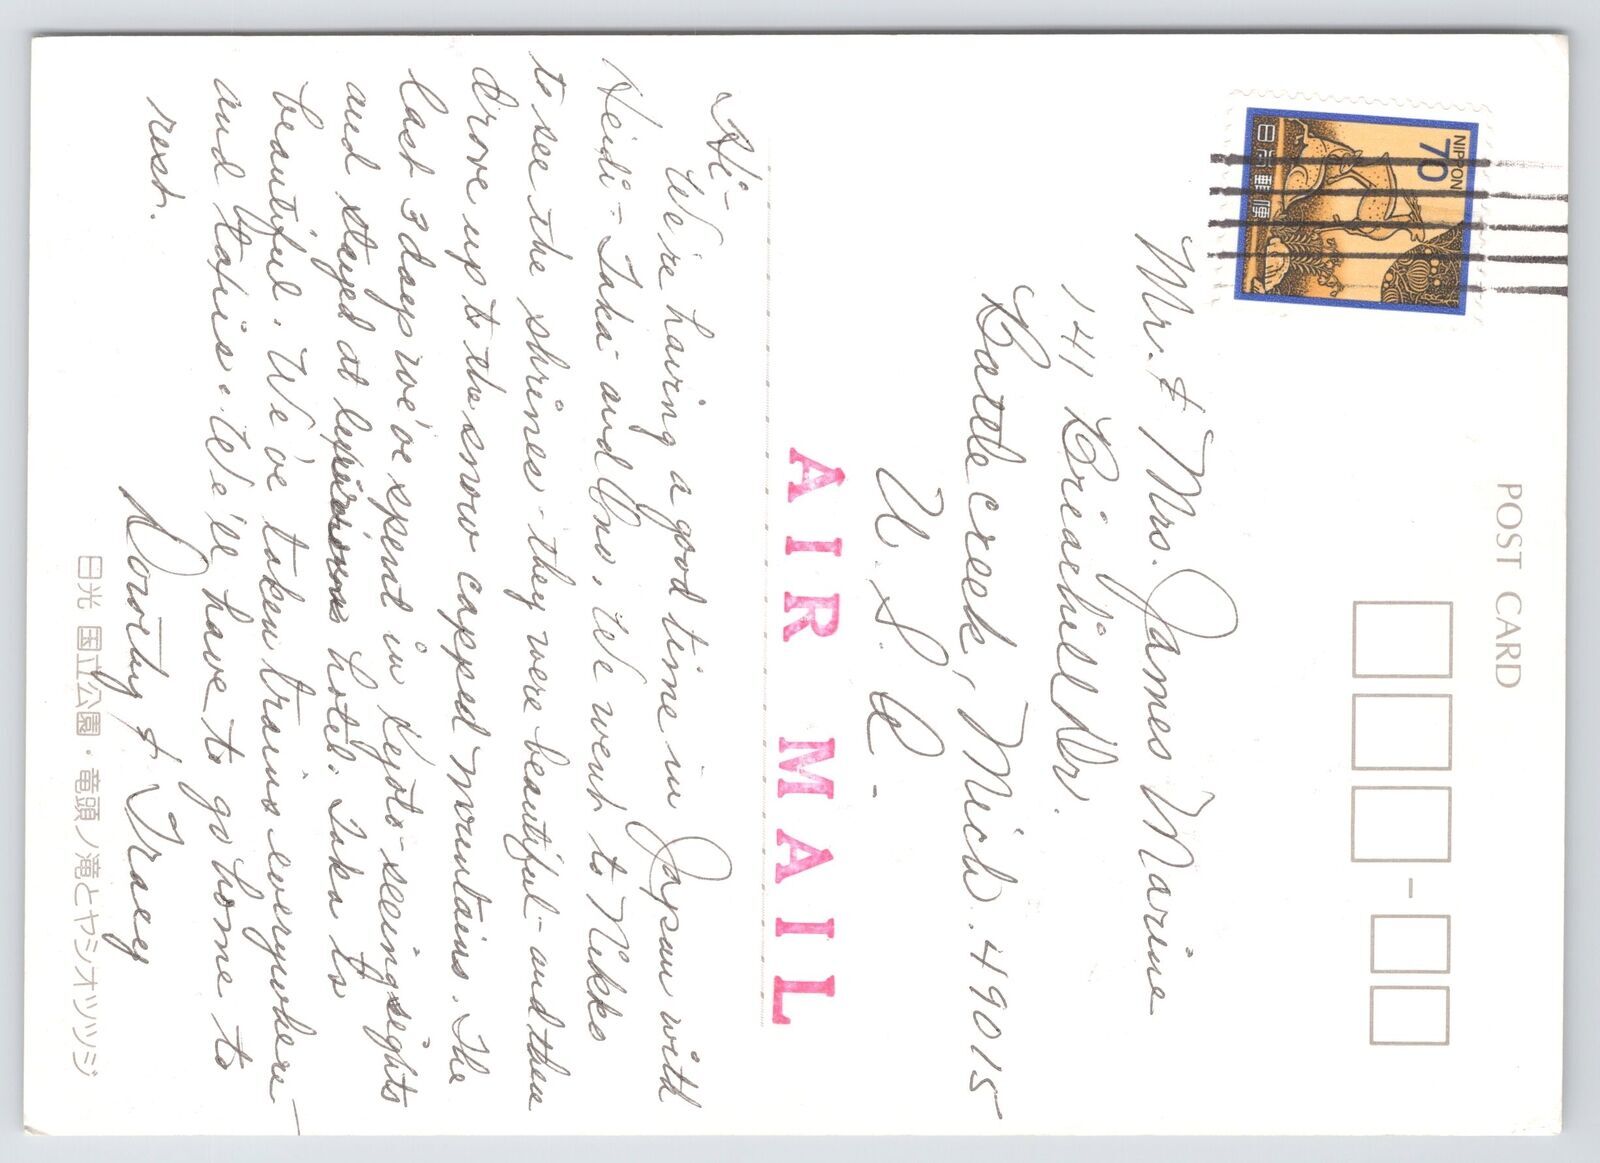 POST CARD
NIPPON
70
日本郵便
Mr. & Mrs. James Marine
141 Briarhill Dr.
Battle creek, Mich. 49015
U. S. A -
AIR MAIL
Hi -
We're having a good time in Japan with
Heidi - Taka - and Ono. We went to Nikko
to see the shrines - they were beautiful - and then
drove up to the snow capped mountains. The
last 3 days we've spent in Kyoto - seeing sights
and stayed at luxurious hotel. Taka is
beautiful. We've taken trains everywhere -
and taxiis. We'll have to go home to
rest.
Dorothy & Tracey
日光 国立公園・竜頭ノ滝とヤシオツツジ